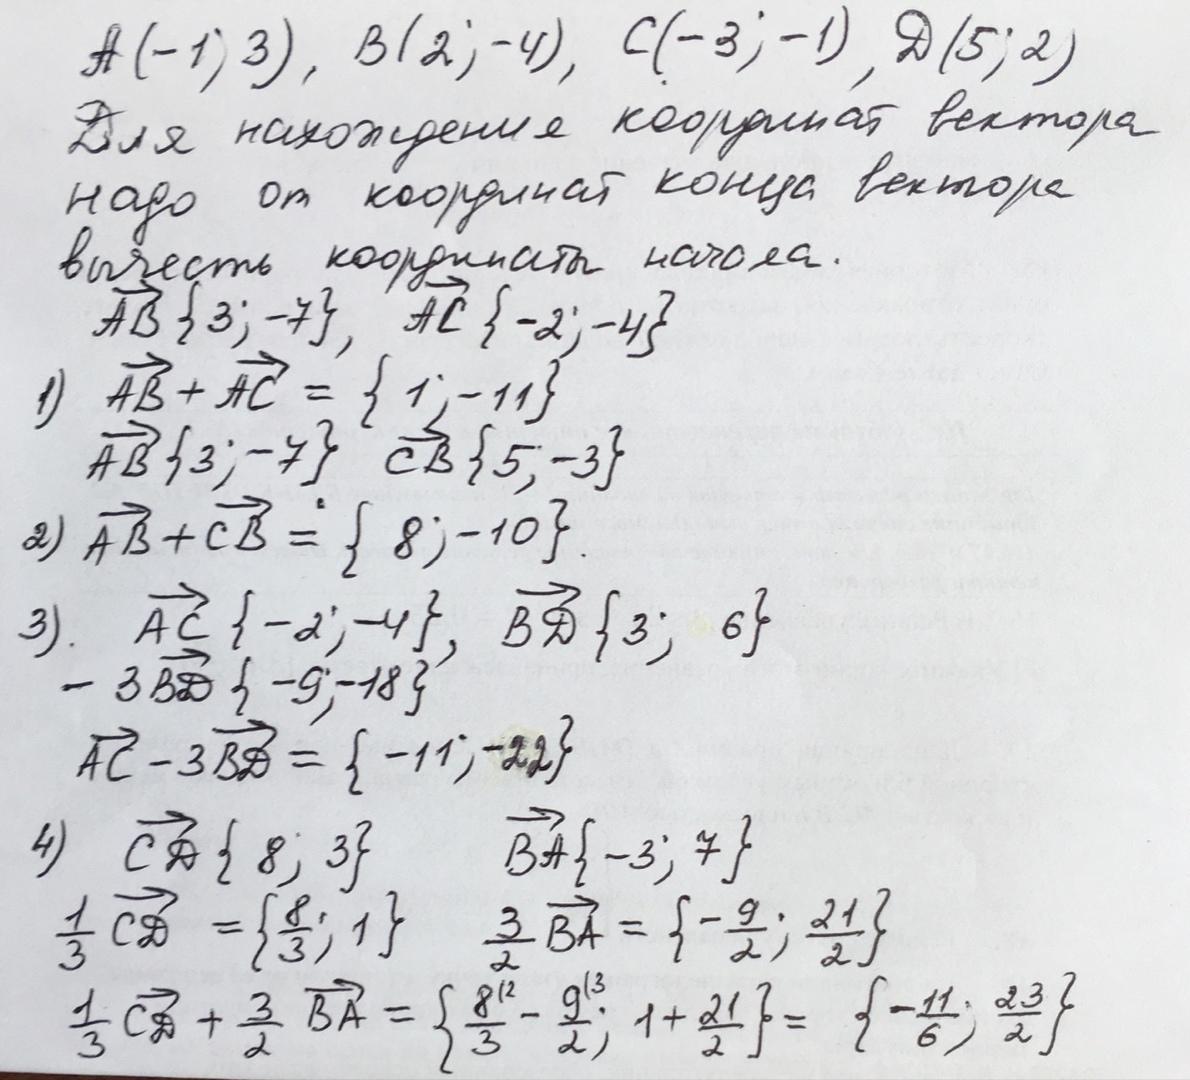 А(-1; 3), В(2; -4), С(-3; -1), Д(5; 2)
Для нахождение координат вектора
надо от координат конца вектора
вычесть координаты начала.
→AB {3; -7}, →AC {-2; -4}
1) →AB + →AC = {1; -11}
→AB {3; -7} →CB {5; -3}
2) →AB + →CB = {8; -10}.
3). →AC {-2; -4}, →BД {3; 6}
- 3→BД {-9; -18}
→AC - 3→BД = {-11; -22}
4) →CД {8; 3} →BA {-3; 7}
1/3 →CД = {8/3; 1} 3/2 →BA = {-9/2; 21/2}
1/3 →CД + 3/2 →BA = {8/3(2 - 9/2(3; 1 + 21/2} = {-11/6; 23/2}